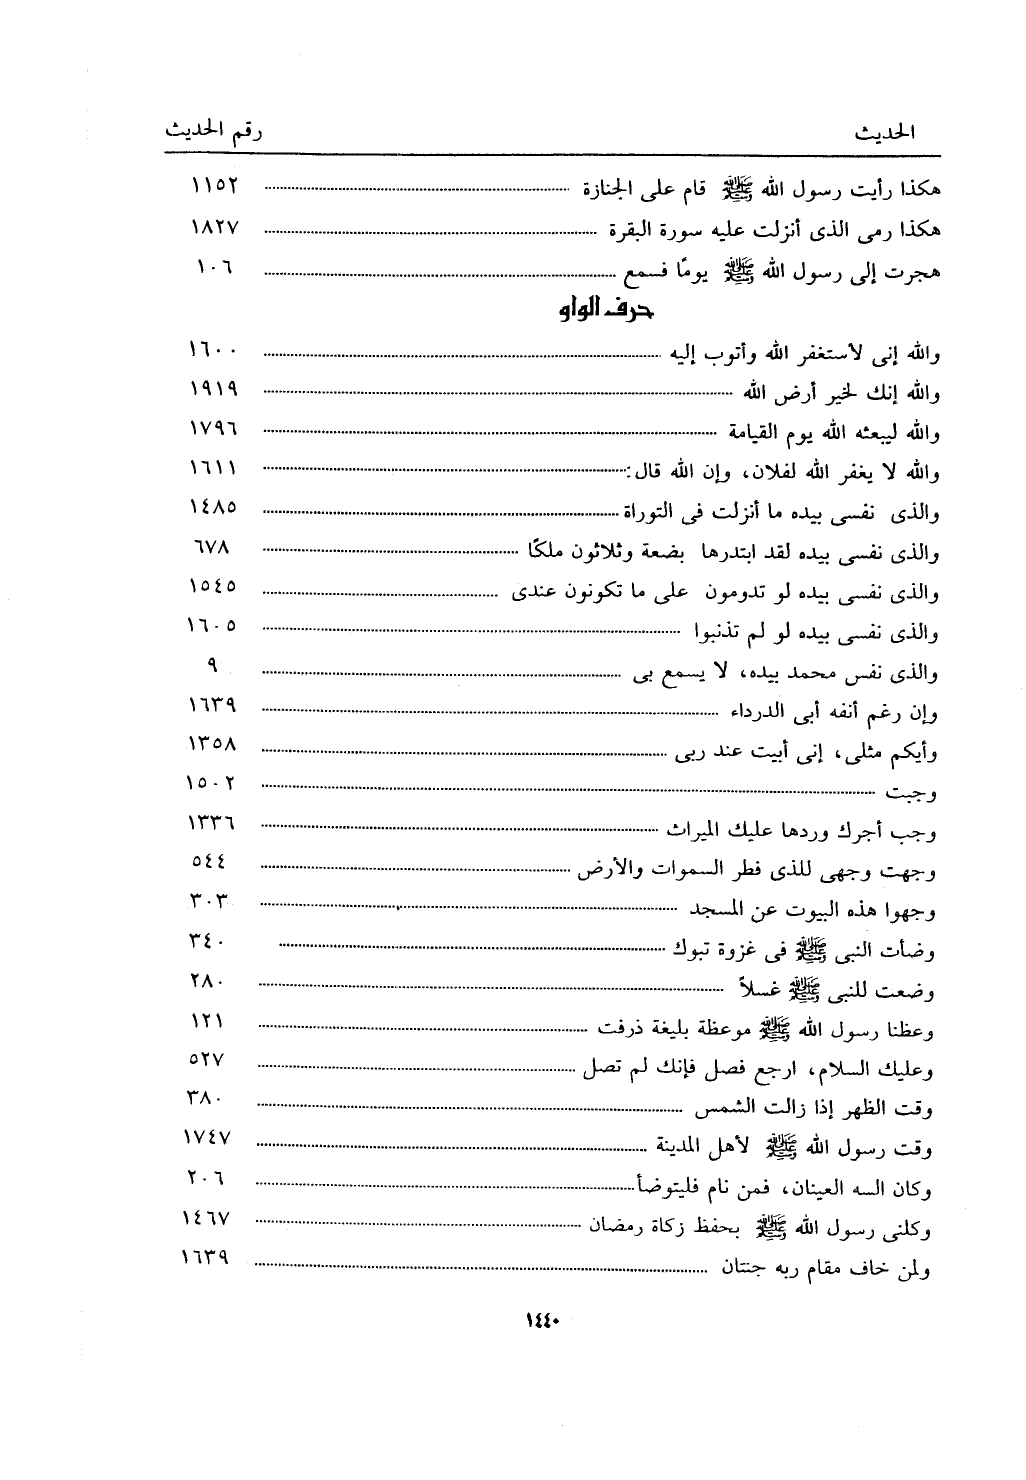 الحديث رقم الحديث
هكذا رأيت رسول الله ﷺ قام على الجنازة ........ ١١٥٢
هكذا رمى الذى أنزلت عليه سورة البقرة ........ ١٨٢٧
هجرت إلى رسول الله ﷺ يومًا فسمع ........ ١٠٦
حرف الواو
والله إنى لأستغفر الله وأتوب إليه ........ ١٦٠٠
والله إنك لخير أرض الله ........ ١٩١٩
والله ليبعثه الله يوم القيامة ........ ١٧٩٦
والله لا يغفر الله لفلان، وإن الله قال: ........ ١٦١١
والذى نفسى بيده ما أنزلت فى التوراة ........ ١٤٨٥
والذى نفسى بيده لقد ابتدرها بضعة وثلاثون ملكًا ........ ٦٧٨
والذى نفسى بيده لو تدومون على ما تكونون عندى ........ ١٥٤٥
والذى نفسى بيده لو لم تذنبوا ........ ١٦٠٥
والذى نفس محمد بيده، لا يسمع بى ........ ٩
وإن رغم أنفه أبى الدرداء ........ ١٦٣٩
وأيكم مثلى، إنى أبيت عند ربى ........ ١٣٥٨
وجبت ........ ١٥٠٢
وجب أجرك وردها عليك الميراث ........ ١٣٣٦
وجهت وجهى للذى فطر السموات والأرض ........ ٥٤٤
وجهوا هذه البيوت عن المسجد ........ ٣٠٣
وضأت النبى ﷺ فى غزوة تبوك ........ ٣٤٠
وضعت للنبى ﷺ غسلاً ........ ٢٨٠
وعظنا رسول الله ﷺ موعظة بليغة ذرفت ........ ١٢١
وعليك السلام، ارجع فصل فإنك لم تصل ........ ٥٢٧
وقت الظهر إذا زالت الشمس ........ ٣٨٠
وقت رسول الله ﷺ لأهل المدينة ........ ١٧٤٧
وكان السه العينان، فمن نام فليتوضأ ........ ٢٠٦
وكلنى رسول الله ﷺ بحفظ زكاة رمضان ........ ١٤٦٧
ولمن خاف مقام ربه جنتان ........ ١٦٣٩
١٤٤٠